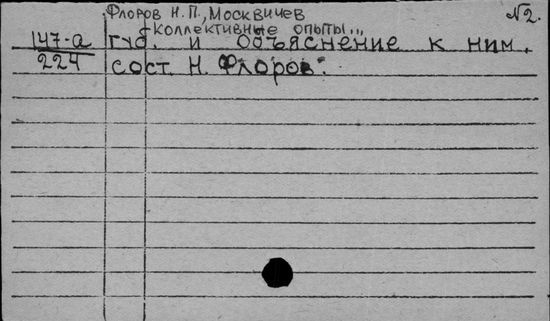 Флоров Н. П., Москвичев
N2.
Коллективные опыты...
147-а губ. и объяснение к ним.
224 сост. Н. Флоров.